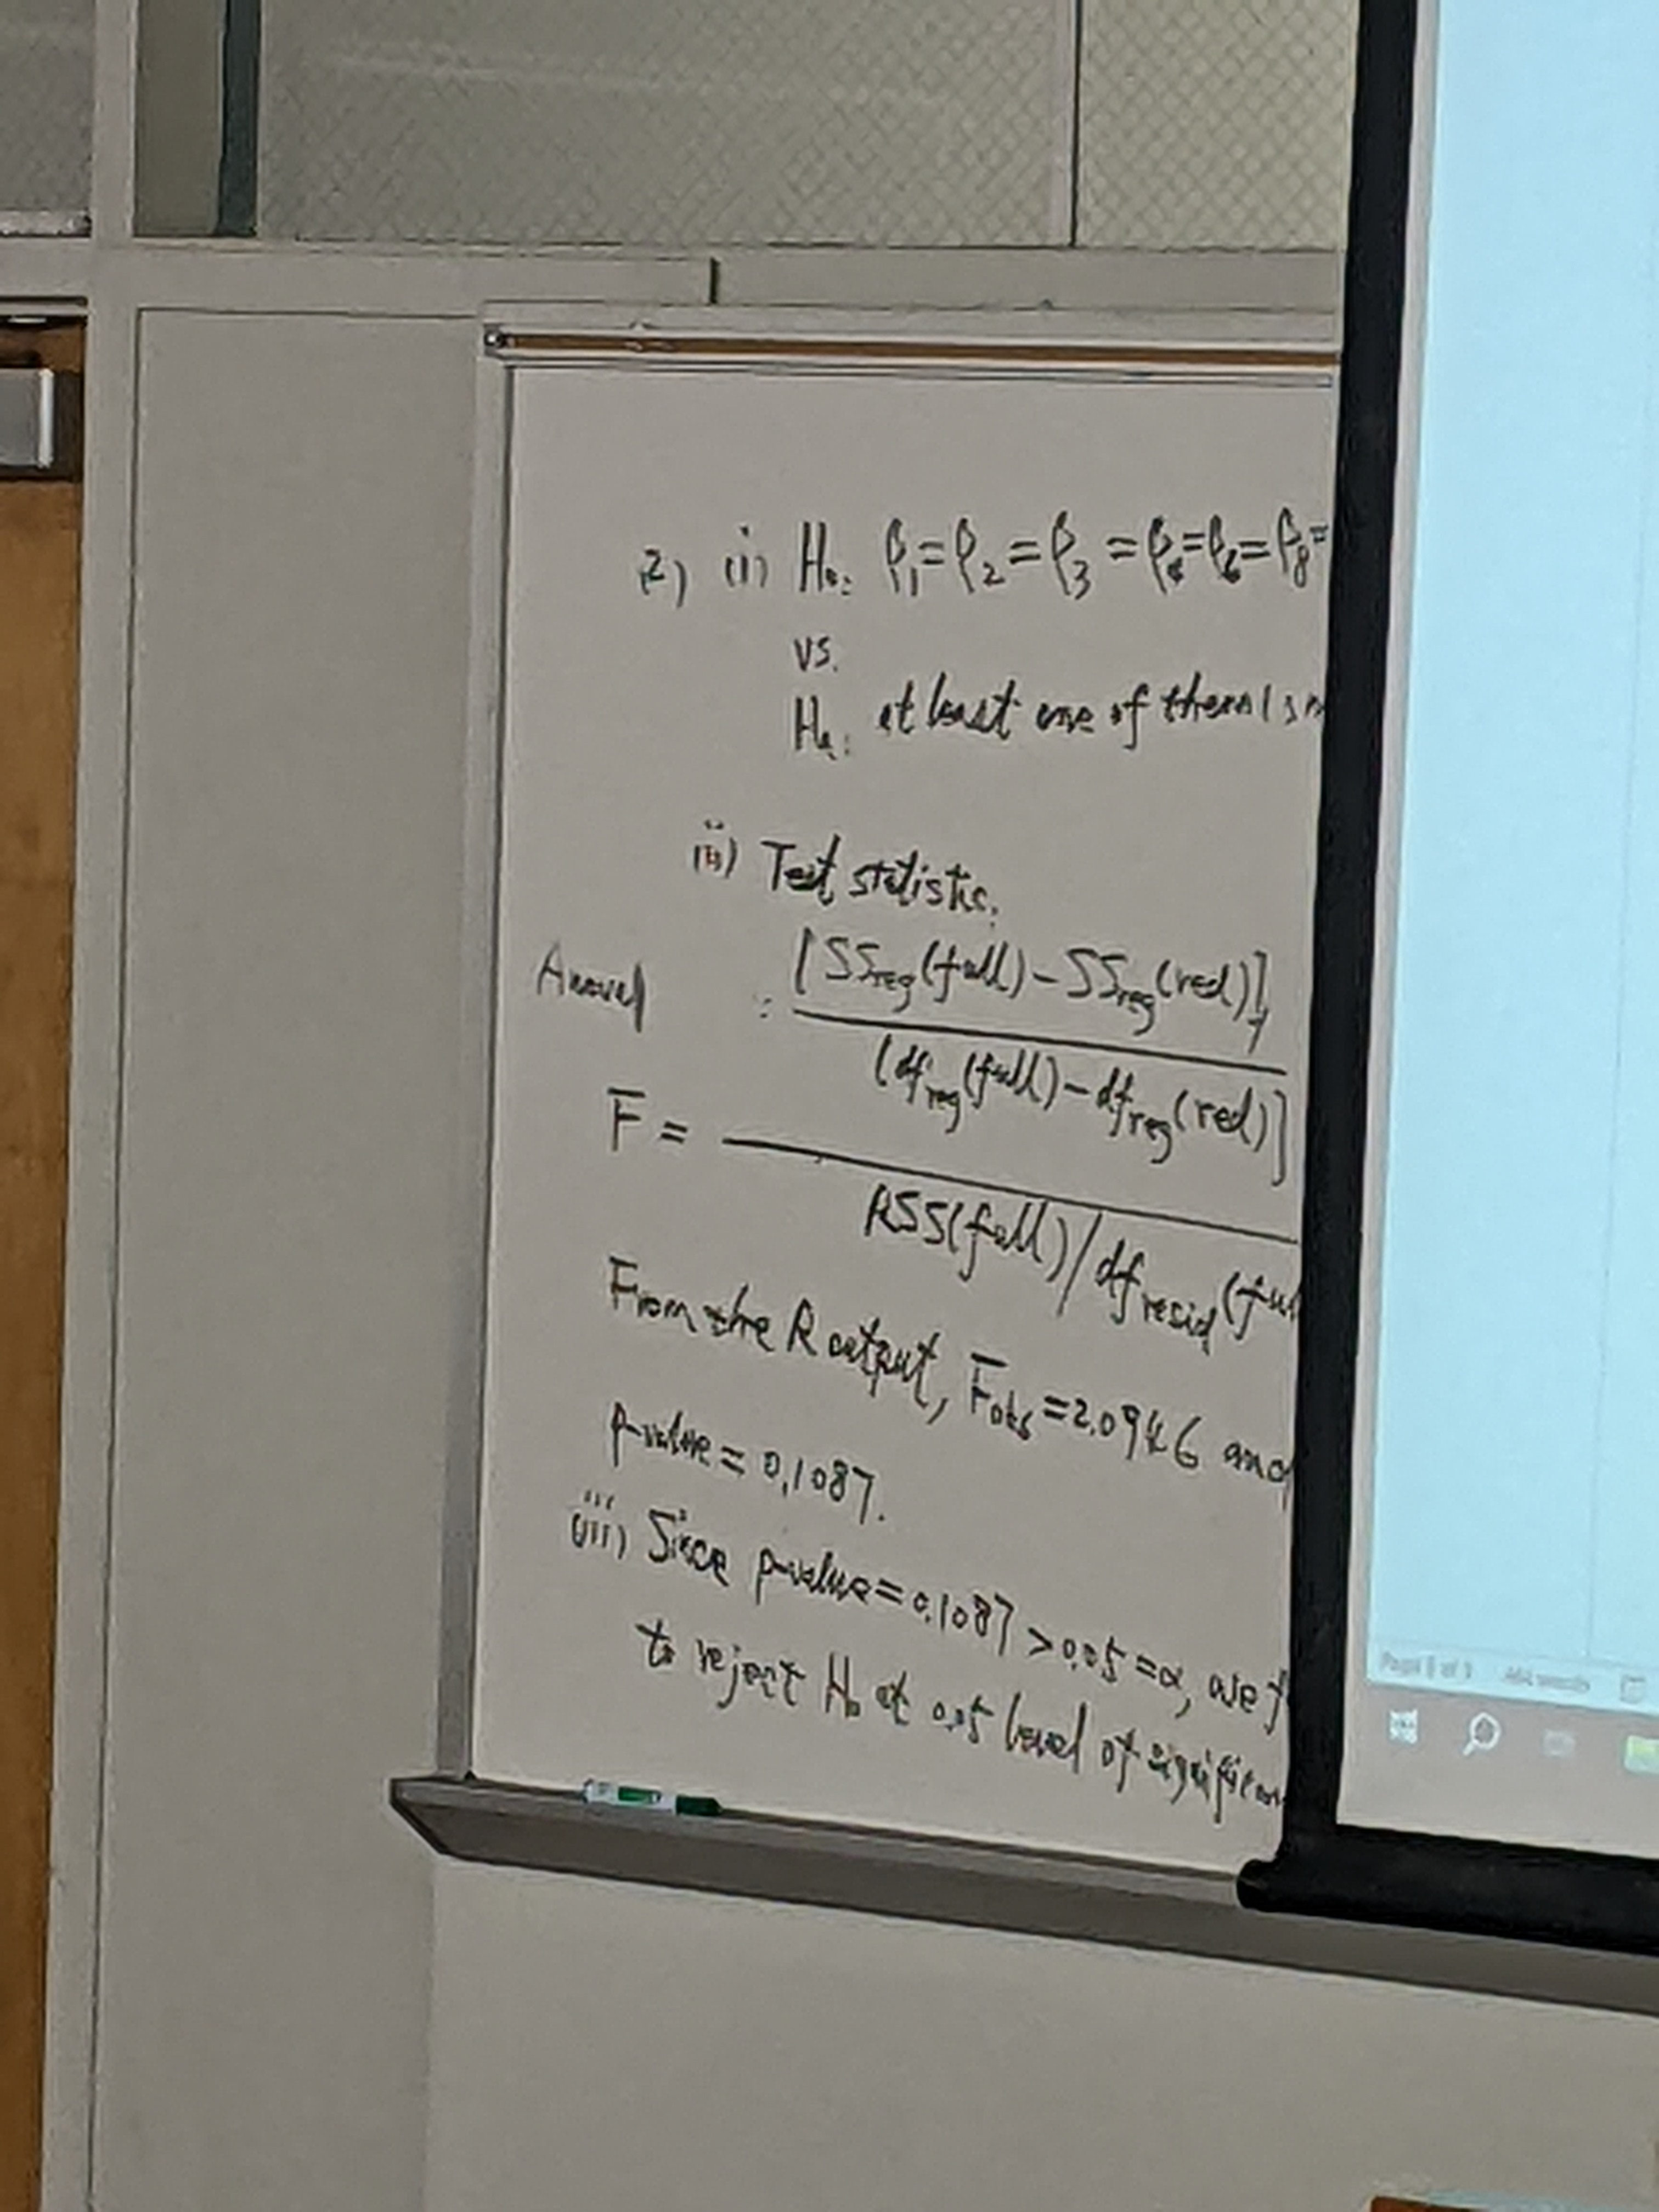 2) (i) H₀: β₁=β₂=β₃=β₄=β₆=β₈=
vs.
Hₐ: at least one of them is n
(ii) Test statistic:
[SSreg(full)-SSreg(red)]/
[dfreg(full)-dfreg(red)]
F =
RSS(full)/dfresid(ful
From the R output, Fobs=2.0946 and
p-value=0.1087.
(iii) Since p-value=0.1087>0.05=α, we f
to reject H₀ at 0.05 level of significan